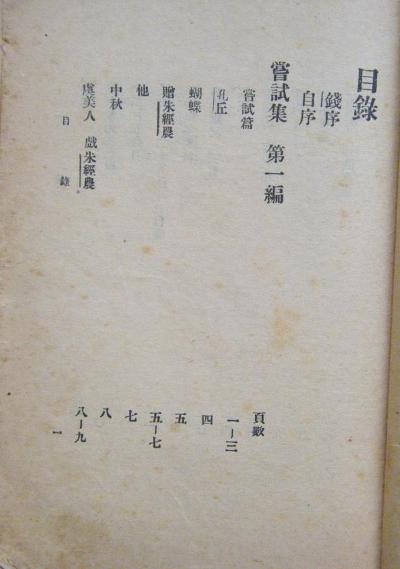 目錄
錢序
自序
嘗試集 第一編
頁數
嘗試篇 一－三
孔丘 四
蝴蝶 五
贈朱經農 五－七
他 七
中秋 八
虞美人 戲朱經農 八－九
目錄 一